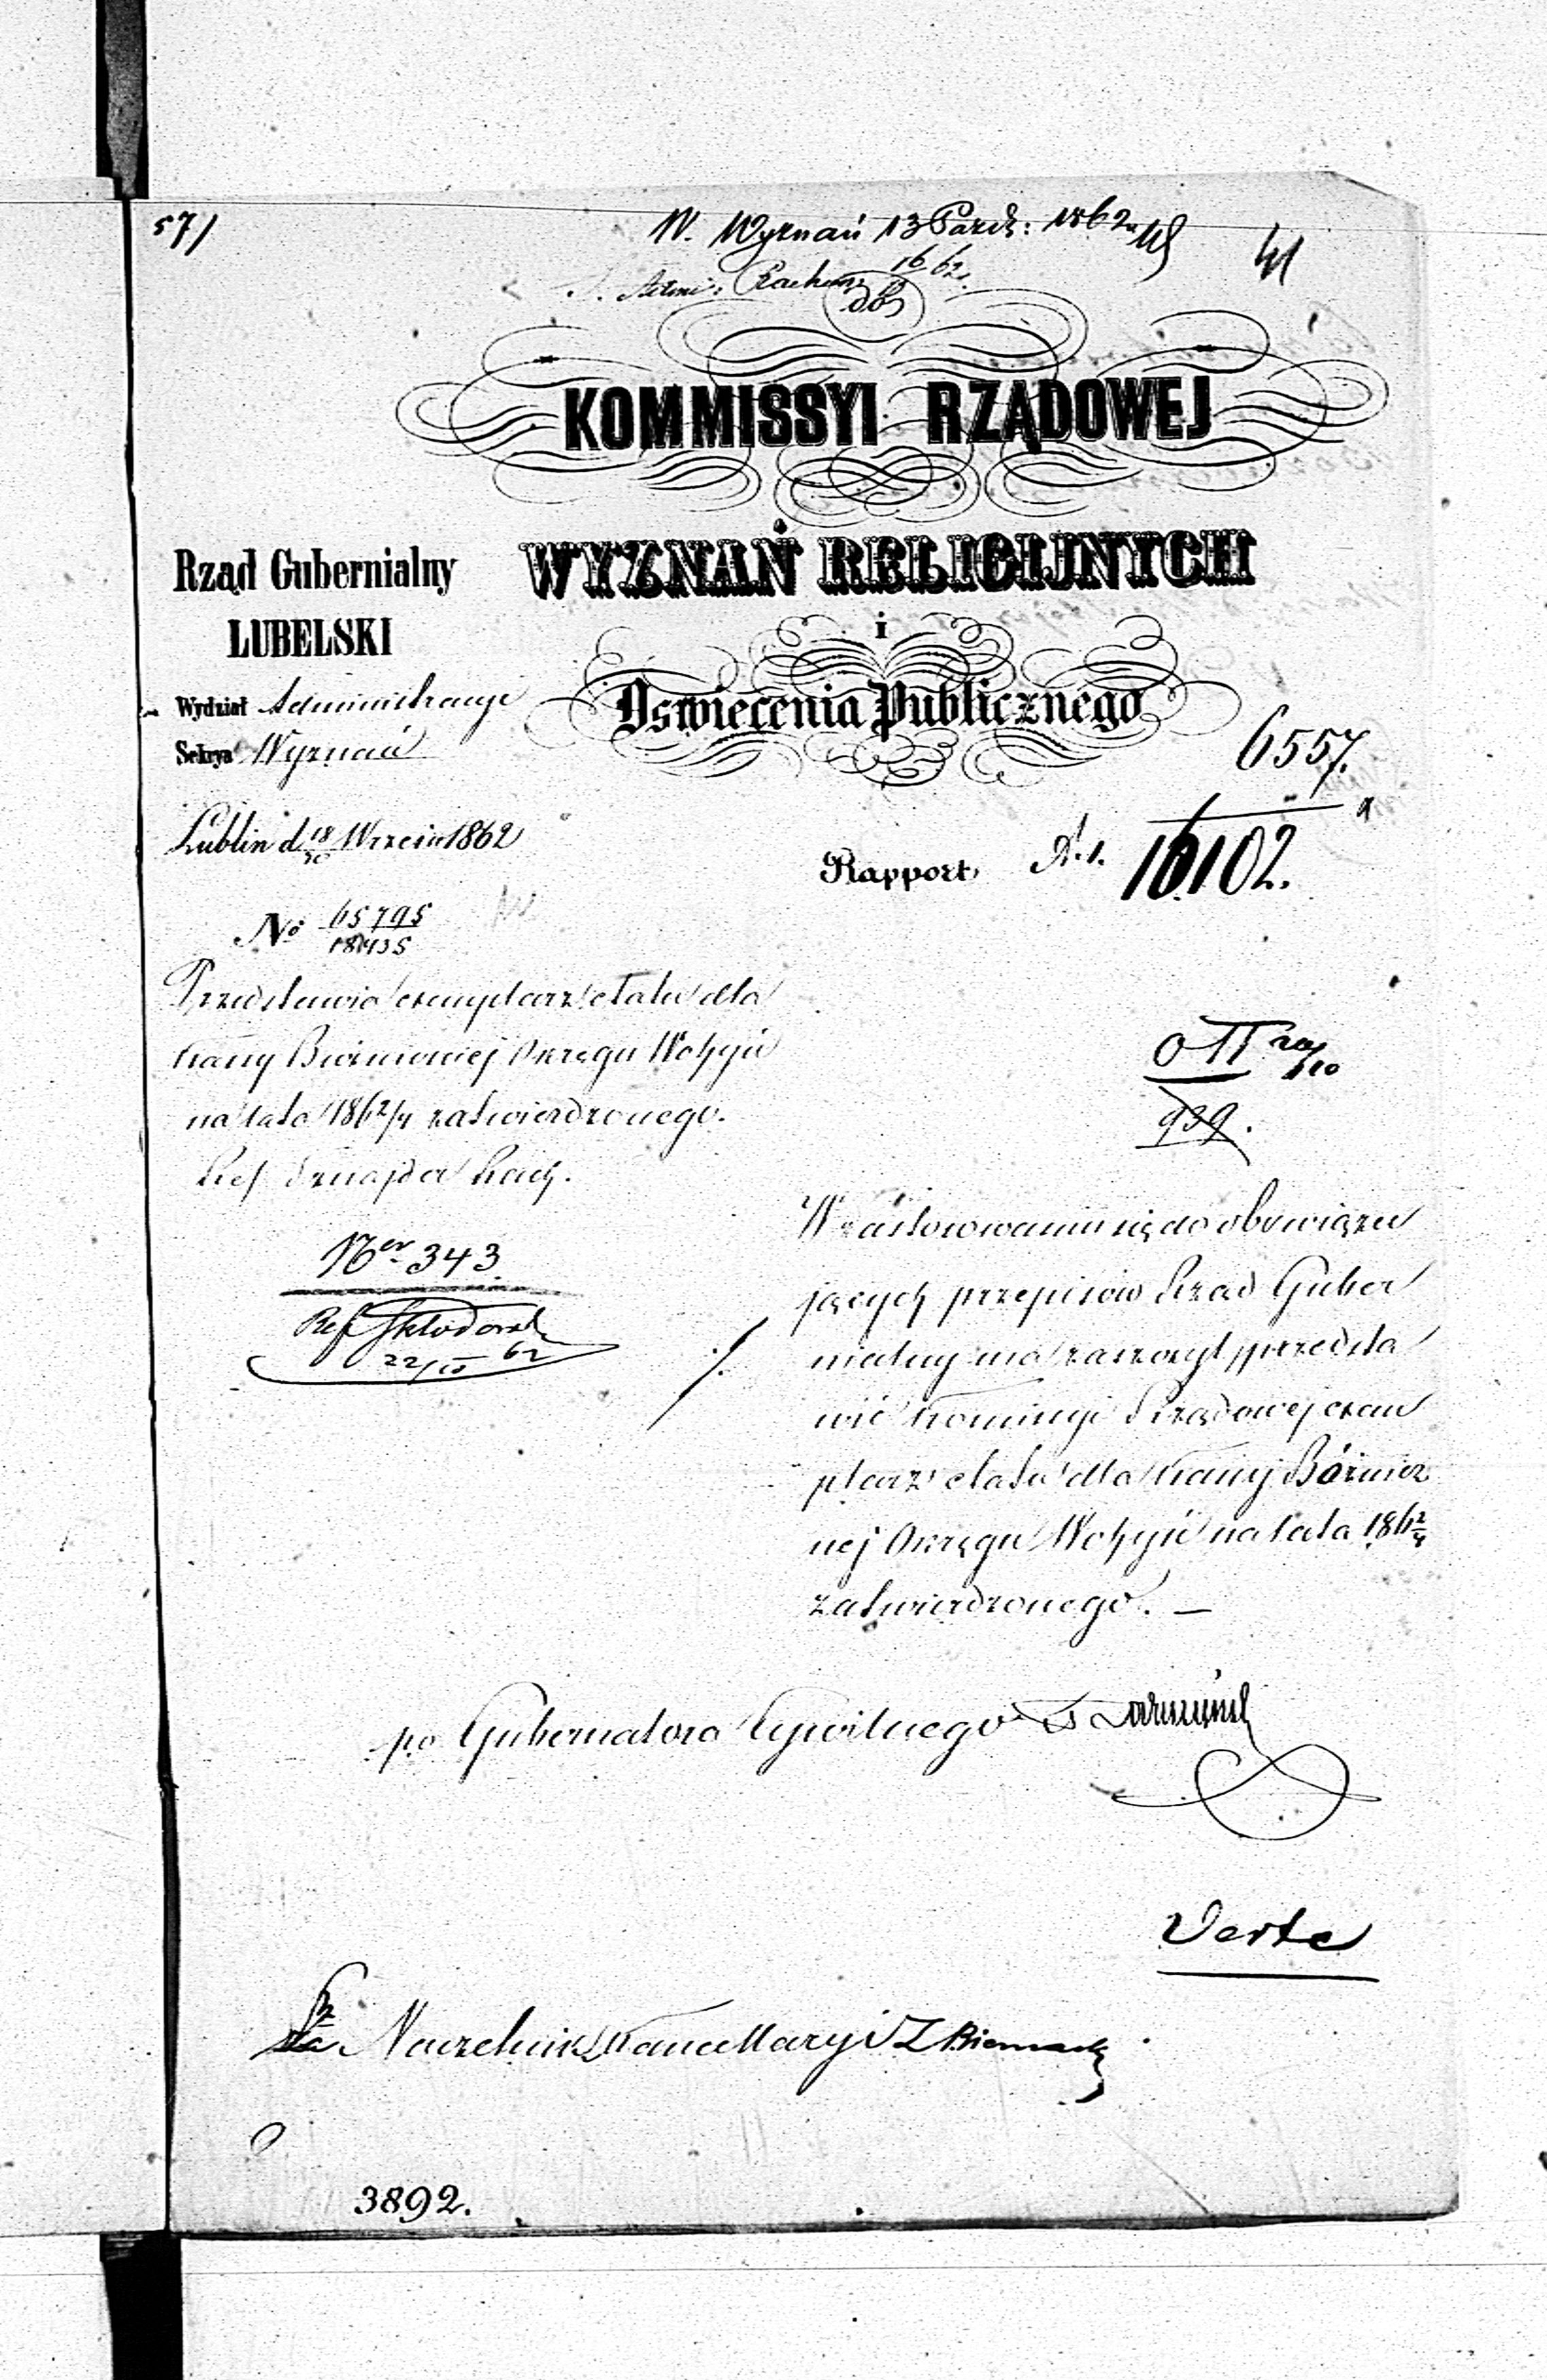 57/
W. Wyznań 13 Paźdz: 1862
41
KOMMISSYI RZĄDOWEJ
WYZNAŃ RELIGIJNYCH
i
Oświecenia Publicznego
Rząd Gubernialny
LUBELSKI
Wydział Administracyi
Sekcya Wyznań
Lublin d 18/30 Wrześn 1862
No 65795/18435
6557.
Rapport A.1. 16102.
Przedstawia exemplarz etatu dla
kassy Bożniczej Okręgu Wohyń
na lata 1862/4 zatwierdzonego.
Ref Sznajder
Ner 343
Ref Skłodowsk
22/10 62
939.
W zastosowaniu się do obowiązu
jących przepisów Rząd Guber
nialny ma zaszczyt przedsta
wić Kommissyi Rządowej exem
plarz etatu dla kassy Bóżnicz
nej Okręgu Wohyń na lata 1862/4
zatwierdzonego. —
po Gubernatora Cywilnego
Verte
za Naczelnik Kancellaryi Z Biernack
3892.